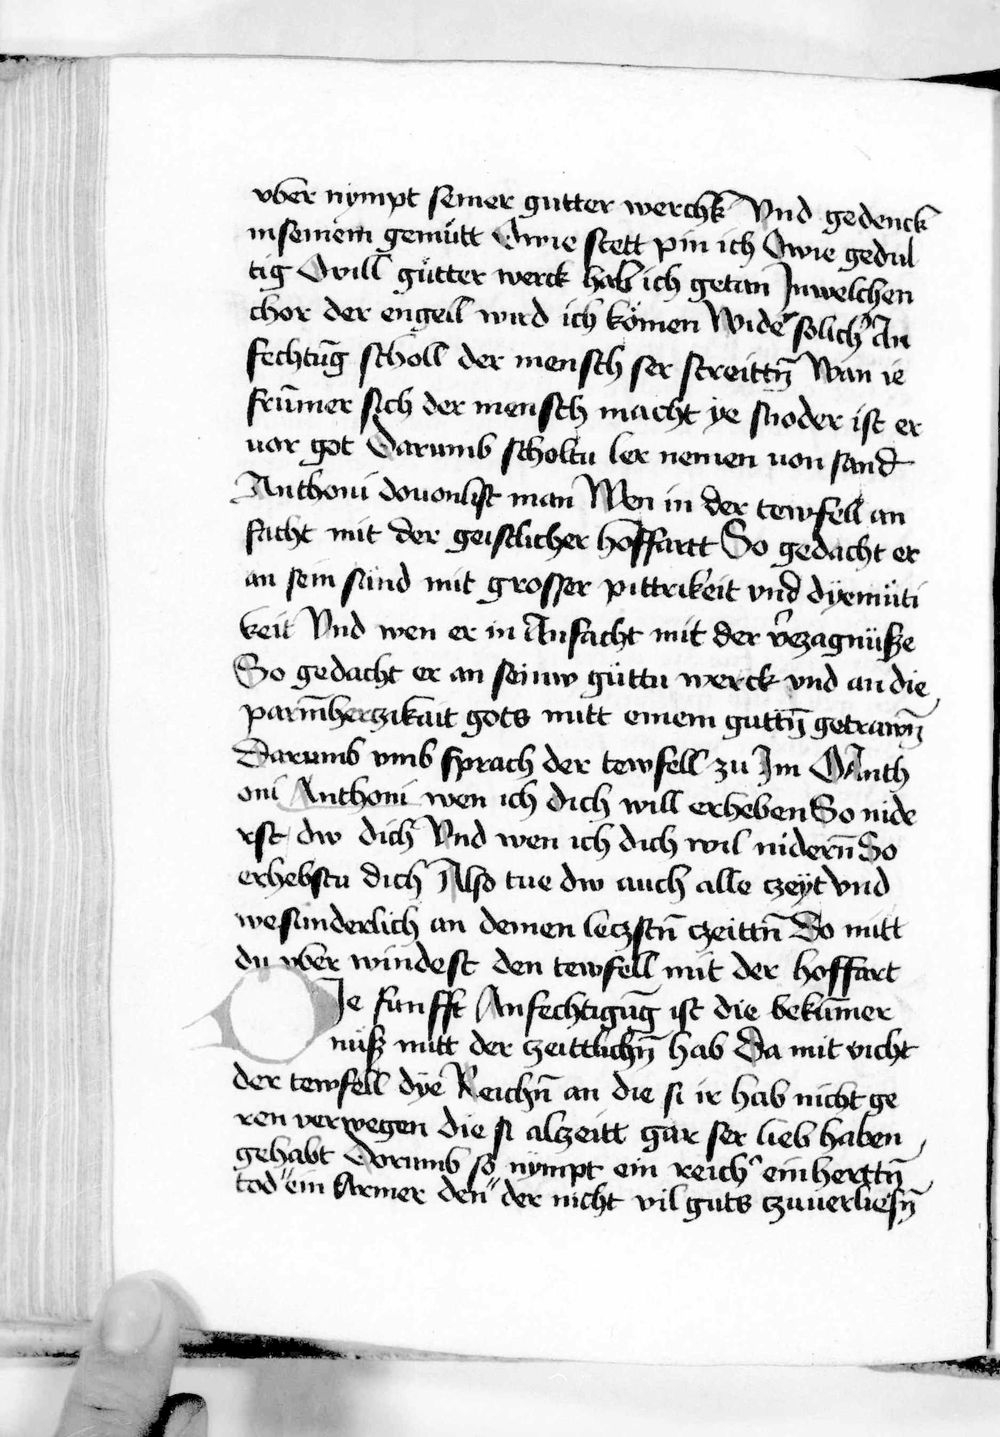 vber nympt seiner gutter werchk Vnd gedenck
in seinem gemütt Owie stett pin ich Owie gedul
tig Owill gütter werck hab ich getan Inwelchen
chor der engell wird ich kömen Wider solicher An
fechtūg scholl der mensch ser streittn̄ Wan ie
frūmer sich der mensch macht ye snoder ist er
uor got Darumb scholtu ler nemen uon sand
Anthoni douonlist man Wen in der tewfell an
facht mit der geistlicher hoffartt So gedacht er
an sein sünd mit grosser pittrikeit vnd dyemüti
keit Vnd wen er in Anfacht mit der v̓ezagnüsze
So gedacht er an seinw güttu werck vnd an die
parm̄herczikait gots mitt einem guttn̄ getrawn̄
Darumb vmb sprach der tewfell zu Im O Anth
oni Anthoni wen ich dich will erheben So nide
rst dw dich Vnd wen ich dich wil nidern̄ So
erhebstu dich Also tue dw auch alle czeyt vnd
wesunderlich an deinen leczstn̄ czeittn̄ Do mitt
du vber windest den tewfell mit der hoffart
Die funfft Anfechtigūg ist die bekūmer
nüsz mitt der czeittlichn̄ hab Da mit vicht
der tewfell dye Reichn̄ an die si ir hab nicht ge
ren verwegen die si alczeitt gar ser lieb haben
gehabt Dorumb so nympt ein reicher ein herttn̄
tod "ein Armer den" der nicht vil guts czuuerliesn̄